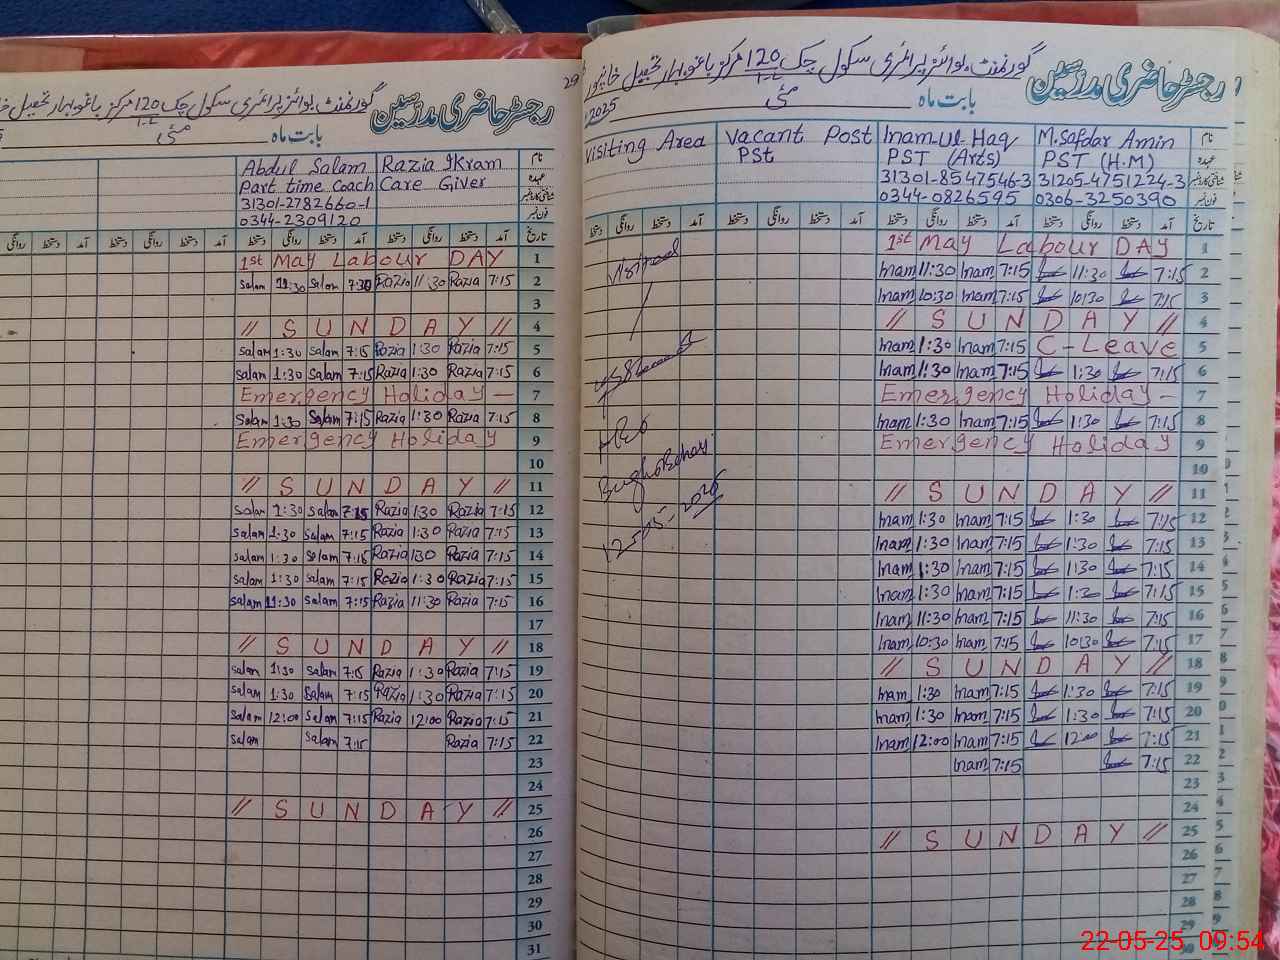 گورنمنٹ بوائز پرائمری سکول چک 120 مرکز باغوبہار تحصیل خانپور
رجسٹر حاضری مدرسین
بابت ماہ مئی
2025
Visiting Area Vacant Post Inam-Ul-Haq M.Safdar Amin نام
PSt PST (Arts) PST (H.M) عہدہ
31301-8547546-3 31205-4751224-3 شناختی کارڈ نمبر
0344-0826595 0306-3250390 فون نمبر
روانگی دستخط آمد دستخط روانگی دستخط آمد دستخط روانگی دستخط آمد تاریخ
1st May Labour DAY 1
Inam 11:30 Inam 7:15 11:30 7:15 2
Inam 10:30 Inam 7:15 10:30 7:15 3
// S U N D A Y // 4
Inam 1:30 Inam 7:15 C-Leave 5
Inam 1:30 Inam 7:15 1:30 7:15 6
Emergency Holiday - 7
Inam 1:30 Inam 7:15 1:30 7:15 8
Emergency Holiday 9
10
// S U N D A Y // 11
Inam 1:30 Inam 7:15 1:30 7:15 12
Inam 1:30 Inam 7:15 1:30 7:15 13
Inam 1:30 Inam 7:15 1:30 7:15 14
Inam 1:30 Inam 7:15 1:30 7:15 15
Inam 11:30 Inam 7:15 11:30 7:15 16
Inam 10:30 Inam 7:15 10:30 7:15 17
// S U N D A Y // 18
Inam 1:30 Inam 7:15 1:30 7:15 19
Inam 1:30 Inam 7:15 1:30 7:15 20
Inam 12:00 Inam 7:15 12:00 7:15 21
Inam 7:15 7:15 22
23
24
// S U N D A Y // 25
26
27
28
29
30
Visited
12-05-2025
29
گورنمنٹ بوائز پرائمری سکول چک 120 مرکز باغوبہار تحصیل
رجسٹر حاضری مدرسین
بابت ماہ مئی
Abdul Salam Razia Ikram نام
Part time Coach Care Giver عہدہ
31301-2782660-1 شناختی کارڈ نمبر
0344-2309120 فون نمبر
روانگی دستخط آمد دستخط روانگی دستخط آمد دستخط روانگی دستخط آمد دستخط روانگی دستخط آمد تاریخ
1st May Labour DAY 1
Salam 11:30 Salam 7:30 Razia 11:30 Razia 7:15 2
3
// S U N D A Y // 4
Salam 1:30 Salam 7:15 Razia 1:30 Razia 7:15 5
Salam 1:30 Salam 7:15 Razia 1:30 Razia 7:15 6
Emergency Holiday - 7
Salam 1:30 Salam 7:15 Razia 1:30 Razia 7:15 8
Emergency Holiday 9
10
// S U N D A Y // 11
Salam 1:30 Salam 7:15 Razia 1:30 Razia 7:15 12
Salam 1:30 Salam 7:15 Razia 1:30 Razia 7:15 13
Salam 1:30 Salam 7:15 Razia 130 Razia 7:15 14
Salam 1:30 Salam 7:15 Razia 1:30 Razia 7:15 15
Salam 11:30 Salam 7:15 Razia 11:30 Razia 7:15 16
17
// S U N D A Y // 18
Salam 1:30 Salam 7:15 Razia 1:30 Razia 7:15 19
Salam 1:30 Salam 7:15 Razia 1:30 Razia 7:15 20
Salam 12:00 Salam 7:15 Razia 12:00 Razia 7:15 21
Salam Salam 7:15 Razia 7:15 22
23
24
// S U N D A Y // 25
26
27
28
29
30
31
22-05-25 09:54